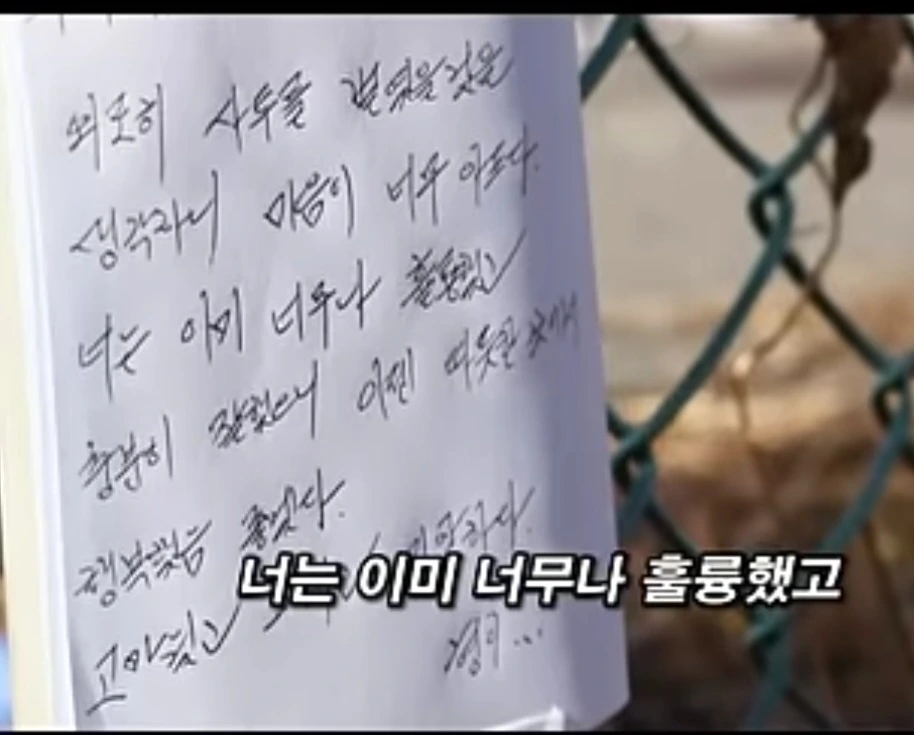 외로히 사투를 벌였을것을
생각하니 마음이 너무 아프다.
너는 이미 너무나 훌륭했고
충분히 잘했으니 이젠 따뜻한 곳에서
행복했음 좋겠다.
고마웠고 미안하다.
형이...
너는 이미 너무나 훌륭했고